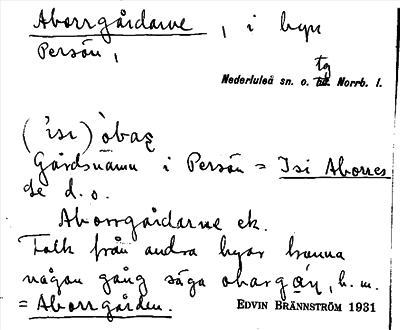 Aborrgårdarne, i byn
Persön,
tg
Nederluleå sn. o. td. Norrb. l.
('isı) òbaʂ
Gårdsnamn i Persön = Isi Aborres
se d. o.
Aborrgårdarne ek.
Folk från andra byar kunna
någon gång säga obargan, h. m.
= Aborrgården. EDVIN BRÄNNSTRÖM 1931